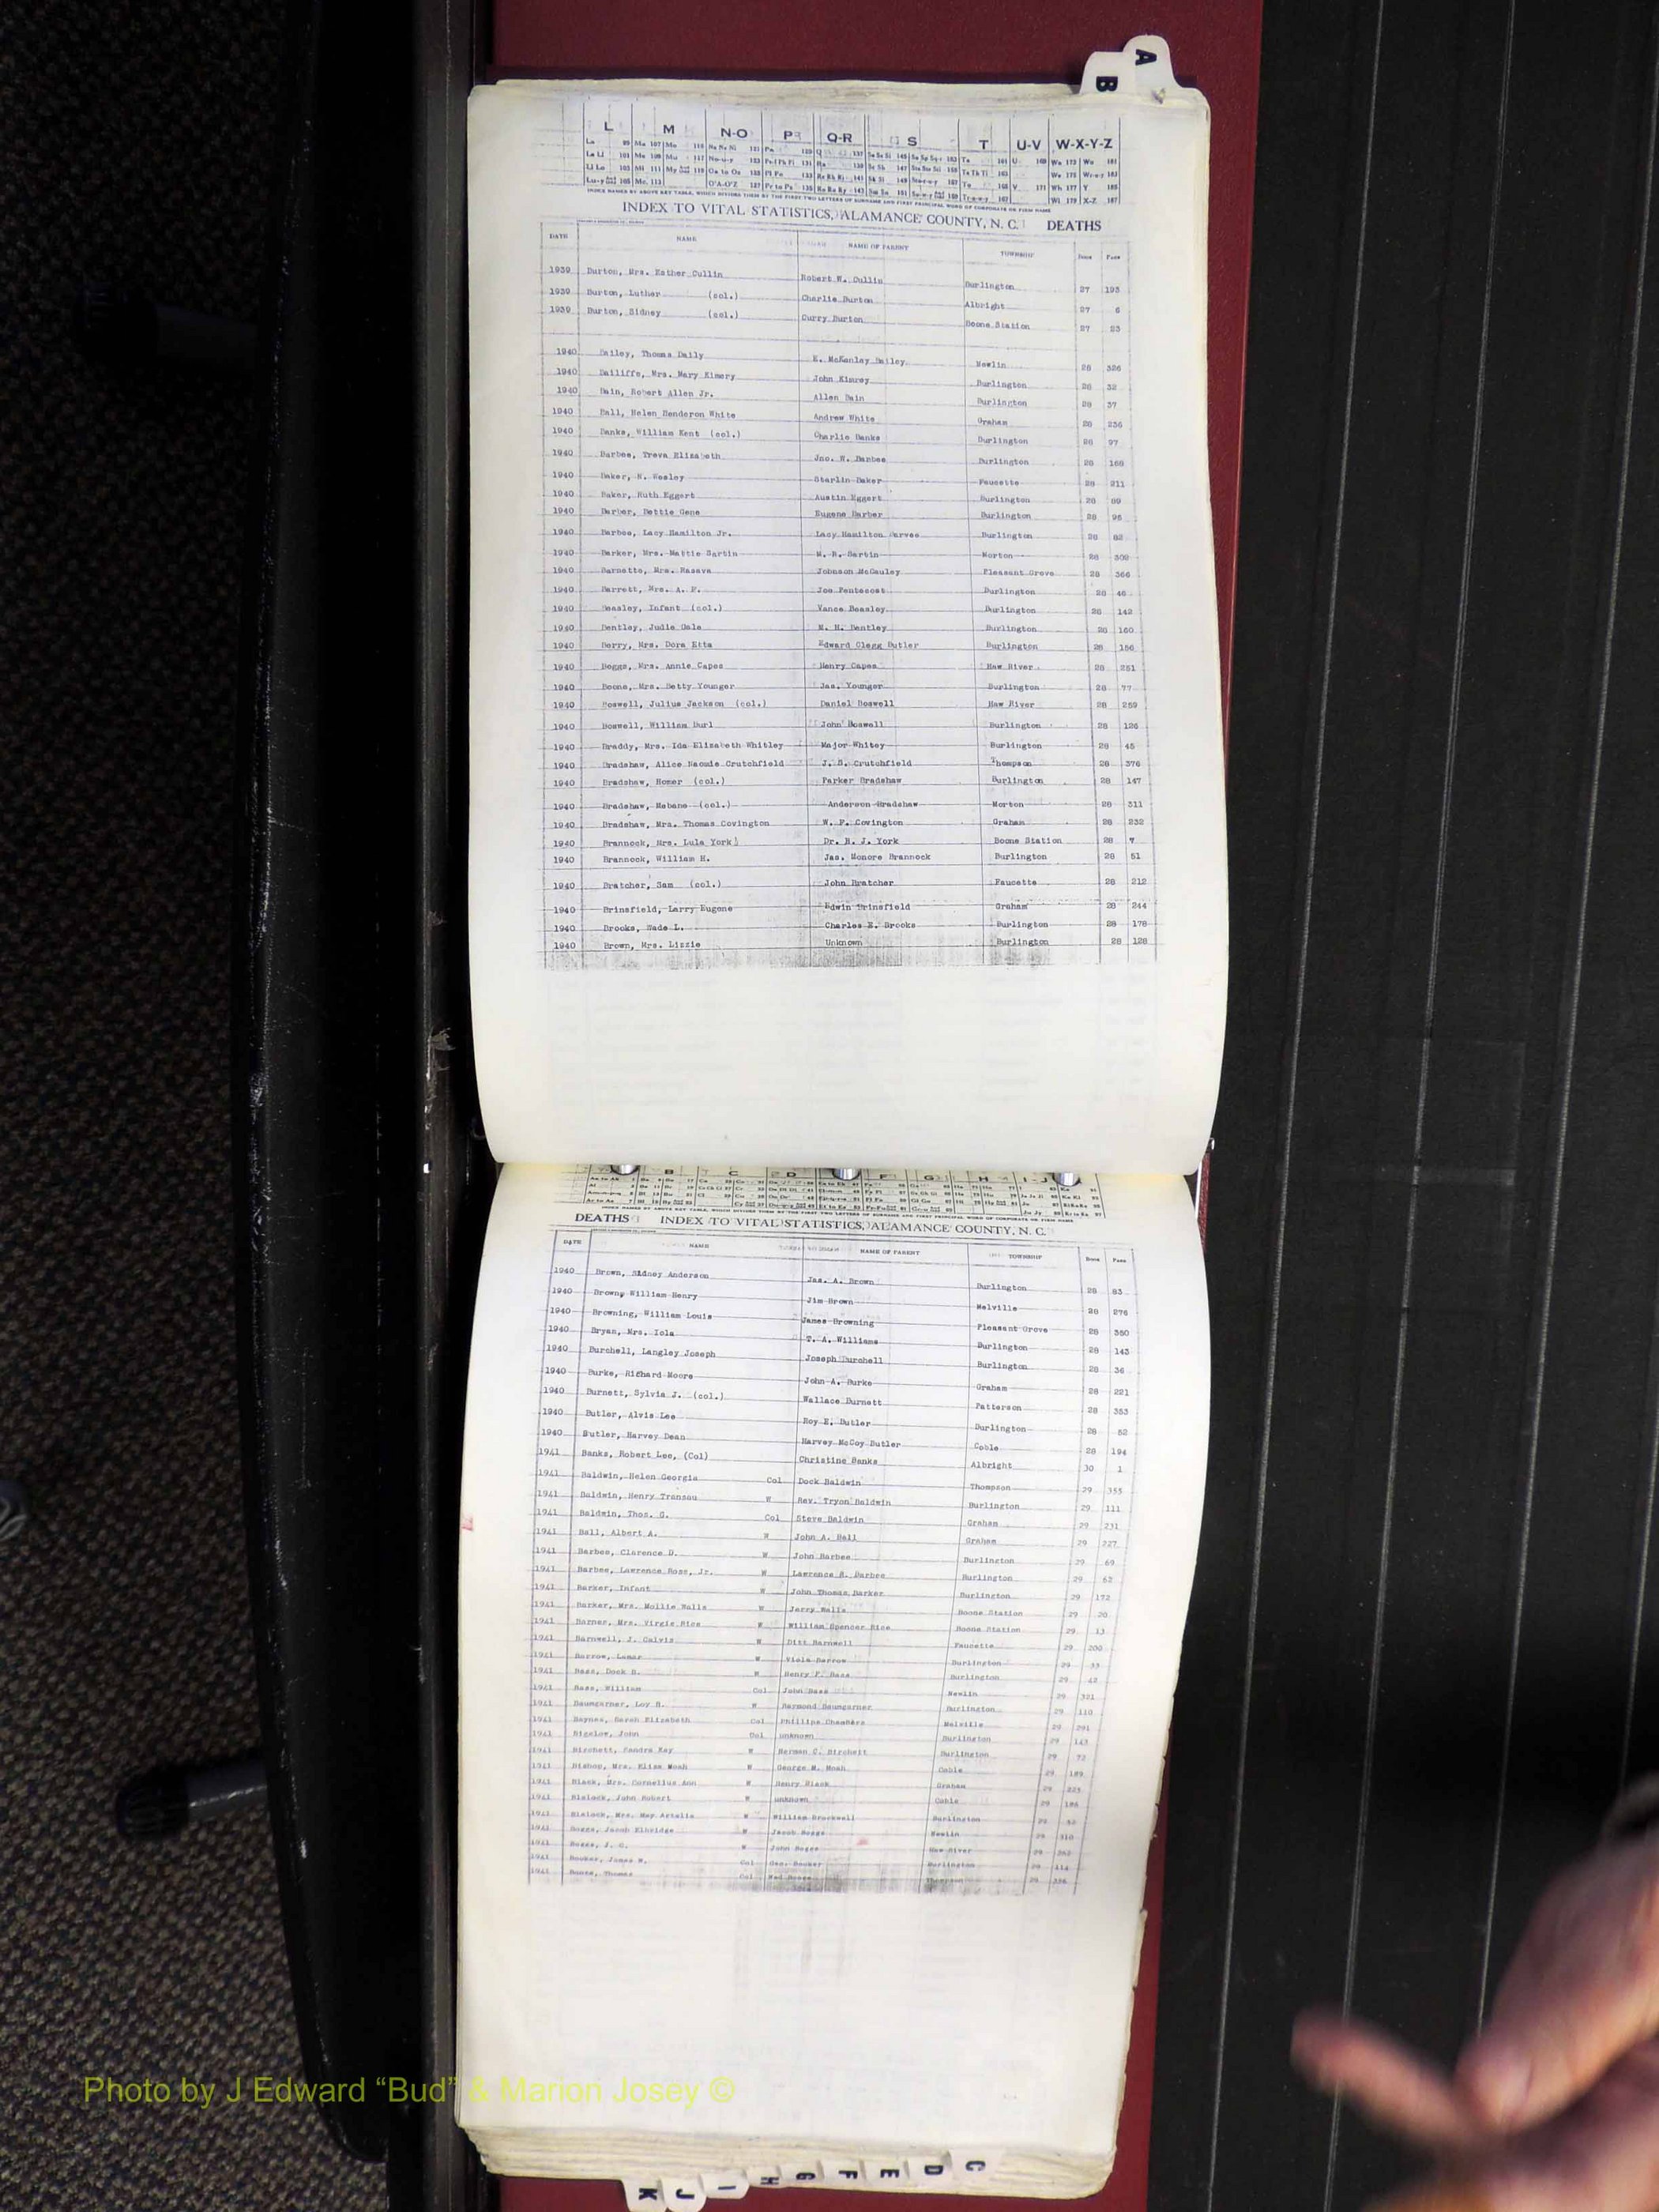 A
B
L M N-O P Q-R S T U-V W-X-Y-Z
INDEX NAMES BY ABOVE KEY TABLE, WHICH DIVIDES THEM BY THE FIRST TWO LETTERS OF SURNAME AND FIRST PRINCIPAL WORD OF CORPORATE OR FIRM NAME
INDEX TO VITAL STATISTICS, ALAMANCE COUNTY, N. C. DEATHS
DATE NAME NAME OF PARENT TOWNSHIP BOOK PAGE
1939 Burton, Mrs. Esther Cullin Robert W. Cullin Burlington 27 193
1939 Burton, Luther (col.) Charlie Burton Albright 27 6
1939 Burton, Sidney (col.) Curry Burton Boone Station 27 23
1940 Bailey, Thomas Daily E. McKanley Bailey Newlin 28 326
1940 Bailiffe, Mrs. Mary Kimery John Kimrey Burlington 28 32
1940 Bain, Robert Allen Jr. Allen Bain Burlington 28 37
1940 Ball, Helen Henderon White Andrew White Graham 28 236
1940 Banks, William Kent (col.) Charlie Banks Burlington 28 97
1940 Barbee, Treva Elizabeth Jno. W. Banbee Burlington 28 168
1940 Baker, N. Wesley Starlin Baker Faucette 28 211
1940 Baker, Ruth Eggert Austin Eggert Burlington 28 89
1940 Barber, Bettie Gene Eugene Barber Burlington 28 96
1940 Barbee, Lacy Hamilton Jr. Lacy Hamilton Barvee Burlington 28 82
1940 Barker, Mrs. Mattie Sartin W. R. Sartin Morton 28 309
1940 Barnette, Mrs. Rasava Johnson McCauley Pleasant Grove 28 366
1940 Barrett, Mrs. A. F. Joe Pentecost Burlington 28 46
1940 Beasley, Infant (col.) Vance Beasley Burlington 28 142
1940 Bentley, Judie Gale M. H. Bentley Burlington 28 160
1940 Berry, Mrs. Dora Etta Edward Clegg Butler Burlington 28 156
1940 Boggs, Mrs. Annie Capes Henry Capes Haw River 28 251
1940 Boone, Mrs. Betty Younger Jas. Younger Burlington 28 77
1940 Boswell, Julius Jackson (col.) Daniel Boswell Haw River 28 259
1940 Boswell, William Burl John Boswell Burlington 28 126
1940 Braddy, Mrs. Ida Elizabeth Whitley Major Whitey Burlington 28 45
1940 Bradshaw, Alice Naomie Crutchfield J. S. Crutchfield Thompson 28 376
1940 Bradshaw, Homer (col.) Parker Bradshaw Burlington 28 147
1940 Bradshaw, Mabane (col.) Anderson Bradshaw Morton 28 311
1940 Bradshaw, Mrs. Thomas Covington W. P. Covington Graham 28 232
1940 Brannock, Mrs. Lula York Dr. B. J. York Boone Station 28 7
1940 Brannock, William H. Jas. Monore Brannock Burlington 28 51
1940 Bratcher, Sam (col.) John Bratcher Faucette 28 212
1940 Brinsfield, Larry Eugene Edwin Brinsfield Graham 28 244
1940 Brooks, Wade L. Charles E. Brooks Burlington 28 178
1940 Brown, Mrs. Lizzie Unknown Burlington 28 128
B C D F G H I-J
INDEX NAMES BY ABOVE KEY TABLE, WHICH DIVIDES THEM BY THE FIRST TWO LETTERS OF SURNAME AND FIRST PRINCIPAL WORD OF CORPORATE OR FIRM NAME
DEATHS INDEX TO VITAL STATISTICS, ALAMANCE COUNTY, N. C.
DATE NAME NAME OF PARENT TOWNSHIP BOOK PAGE
1940 Brown, Sidney Anderson Jas. A. Brown Burlington 28 83
1940 Brown, William Henry Jim Brown Melville 28 276
1940 Browning, William Louis James Browning Pleasant Grove 28 350
1940 Bryan, Mrs. Iola T. A. Williams Burlington 28 143
1940 Burchell, Langley Joseph Joseph Burchell Burlington 28 36
1940 Burke, Richard Moore John A. Burke Graham 28 221
1940 Burnett, Sylvia J. (col.) Wallace Burnett Patterson 28 353
1940 Butler, Alvis Lee Roy E. Butler Burlington 28 52
1940 Butler, Harvey Dean Harvey McCoy Butler Coble 28 194
1941 Banks, Robert Lee, (Col) Christine Banks Albright 30 1
1941 Baldwin, Helen Georgia Col Dock Baldwin Thompson 29 355
1941 Baldwin, Henry Transau W Rev. Tryon Baldwin Burlington 29 111
1941 Baldwin, Thos. G. Col Steve Baldwin Graham 29 231
1941 Ball, Albert A. W John A. Ball Graham 29 227
1941 Barbee, Clarence D. W John Barbee Burlington 29 69
1941 Barbee, Lawrence Ross, Jr. W Lawrence R. Barbee Burlington 29 62
1941 Barker, Infant W John Thomas Barker Burlington 29 172
1941 Barker, Mrs. Mollie Walls W Jerry Walls Boone Station 29 20
1941 Barner, Mrs. Virgie Rice W William Spencer Rice Boone Station 29 13
1941 Barnwell, J. Calvin W Ditt Barnwell Faucette 29 200
1941 Barrow, Lamar W Viola Barrow Burlington 29 33
1941 Bass, Dock B. W Henry F. Bass Burlington 29 42
1941 Bass, William Col John Bass Newlin 29 321
1941 Baumgarner, Loy H. W Raymond Baumgarner Burlington 29 110
1941 Baynes, Sarah Elizabeth Col Phillips Chambers Melville 29 291
1941 Bigelow, John Col unknown Burlington 29 143
1941 Birchett, Sandra Kay W Herman C. Birchett Burlington 29 72
1941 Bishop, Mrs. Eliza Noah W George M. Noah Coble 29 189
1941 Black, Mrs. Cornelius Ann W Henry Black Graham 29 223
1941 Blalock, John Robert W unknown Coble 29 188
1941 Blalock, Mrs. May Artelia W William Brockwell Burlington 29
1941 Boggs, Jacob Elhridge W Jacob Boggs Newlin 29 310
1941 Boggs, J. G. W John Boggs Haw River 29 262
1941 Booker, James W. Col Geo. Booker Burlington 29 114
1941 Boone, Thomas Col Ned Boone Thompson 29 356
Photo by J Edward “Bud” & Marion Josey ©
C D E F G H I J K